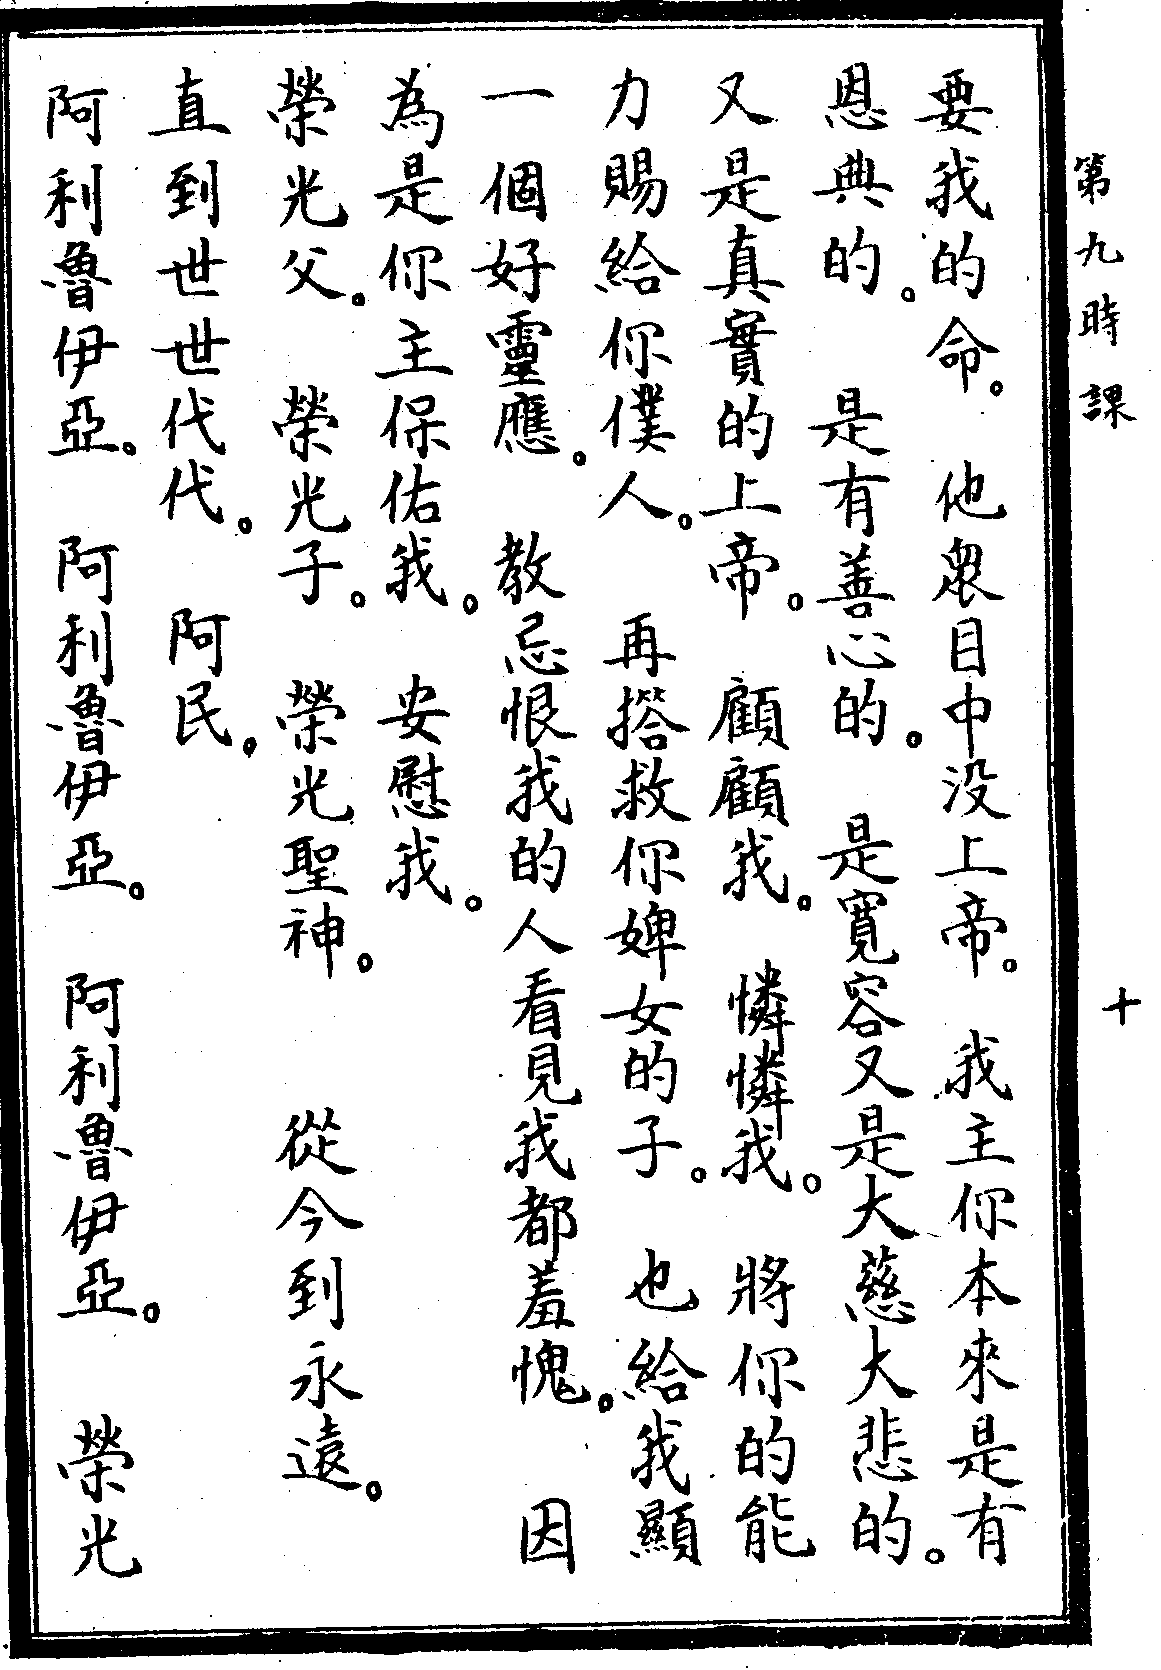 第九時課 十
要我的命。 他衆目中没上帝。 我主你本來是有
恩典的。 是有善心的。 是寬容又是大慈大悲的。
又是真實的上帝。 顧顧我。 憐憐我。 將你的能
力賜給你僕人。 再搭救你婢女的子。 也給我顯
一個好靈應。 教忌恨我的人看見我都羞愧。 因
為是你主保佑我。 安慰我。
榮光父。 榮光子。 榮光聖神。 從今到永遠。
直到世世代代。 阿民。
阿利魯伊亞。 阿利魯伊亞。 阿利魯伊亞。 榮光